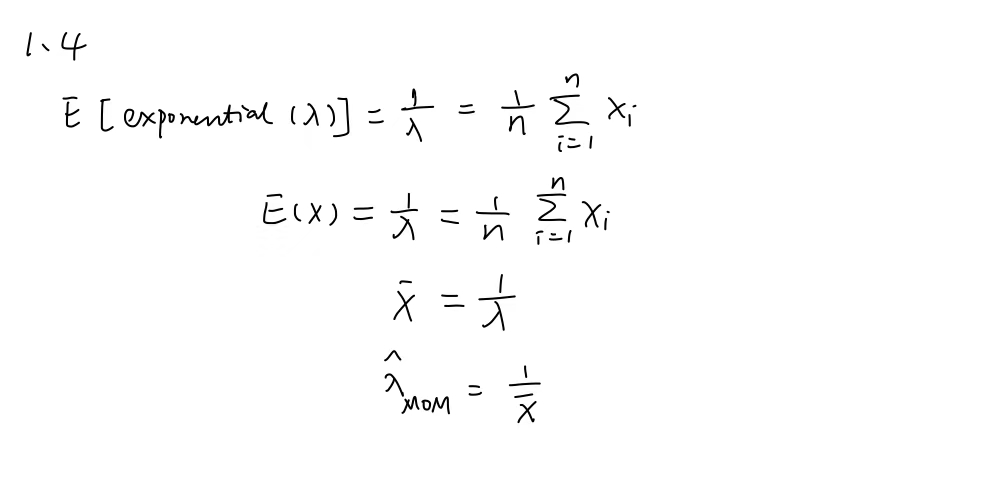 1、4
E [exponential (λ)] = 1/λ = 1/n ∑_{i=1}^{n} x_i
E(x) = 1/λ = 1/n ∑_{i=1}^{n} x_i
x̄ = 1/λ
λ̂_MOM = 1/x̄